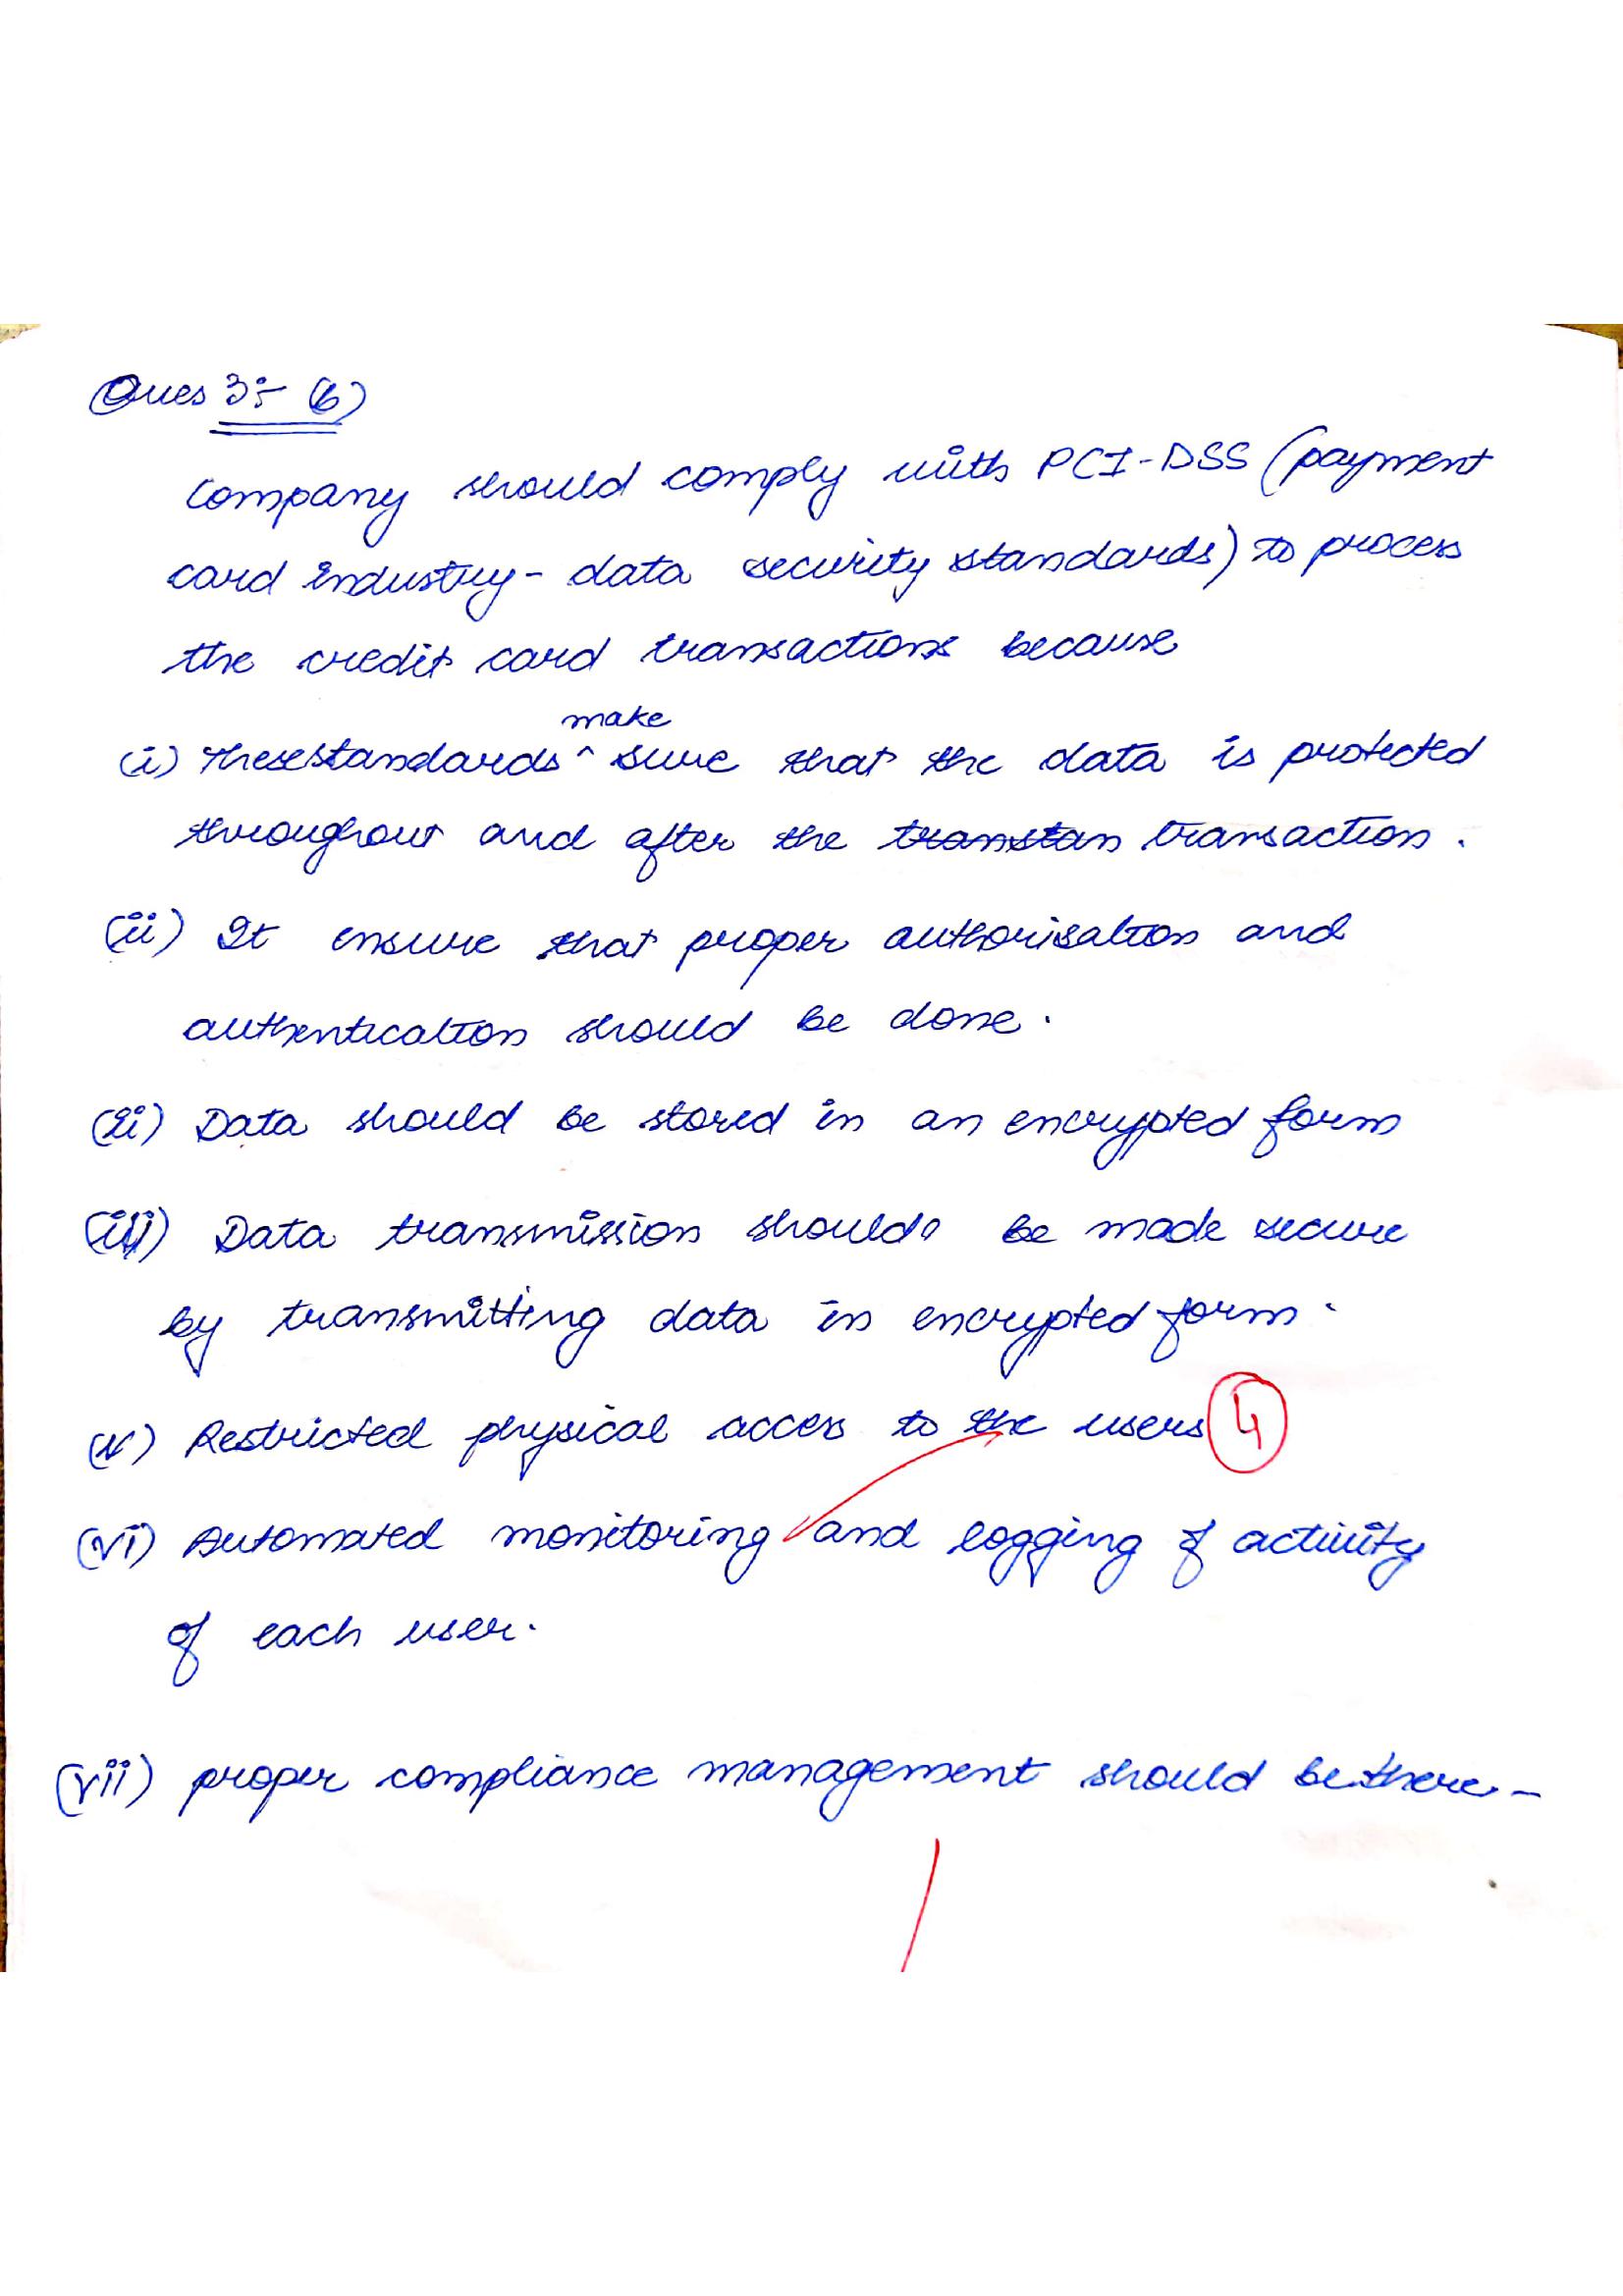 Ques 3:- (b)
Company should comply with PCI-DSS (payment
card industry - data security standards) to process
the credit card transactions because
make
(i) These standards ^ sure that the data is protected
throughout and after the transtan transaction.
(ii) It ensure that proper authorisation and
authentication should be done.
(iii) Data should be stored in an encrypted form
(iv) Data transmission should be made secure
by transmitting data in encrypted form.
(v) Restricted physical access to the users 4
(vi) Automated monitoring and logging of activity
of each user.
(vii) proper compliance management should be there -